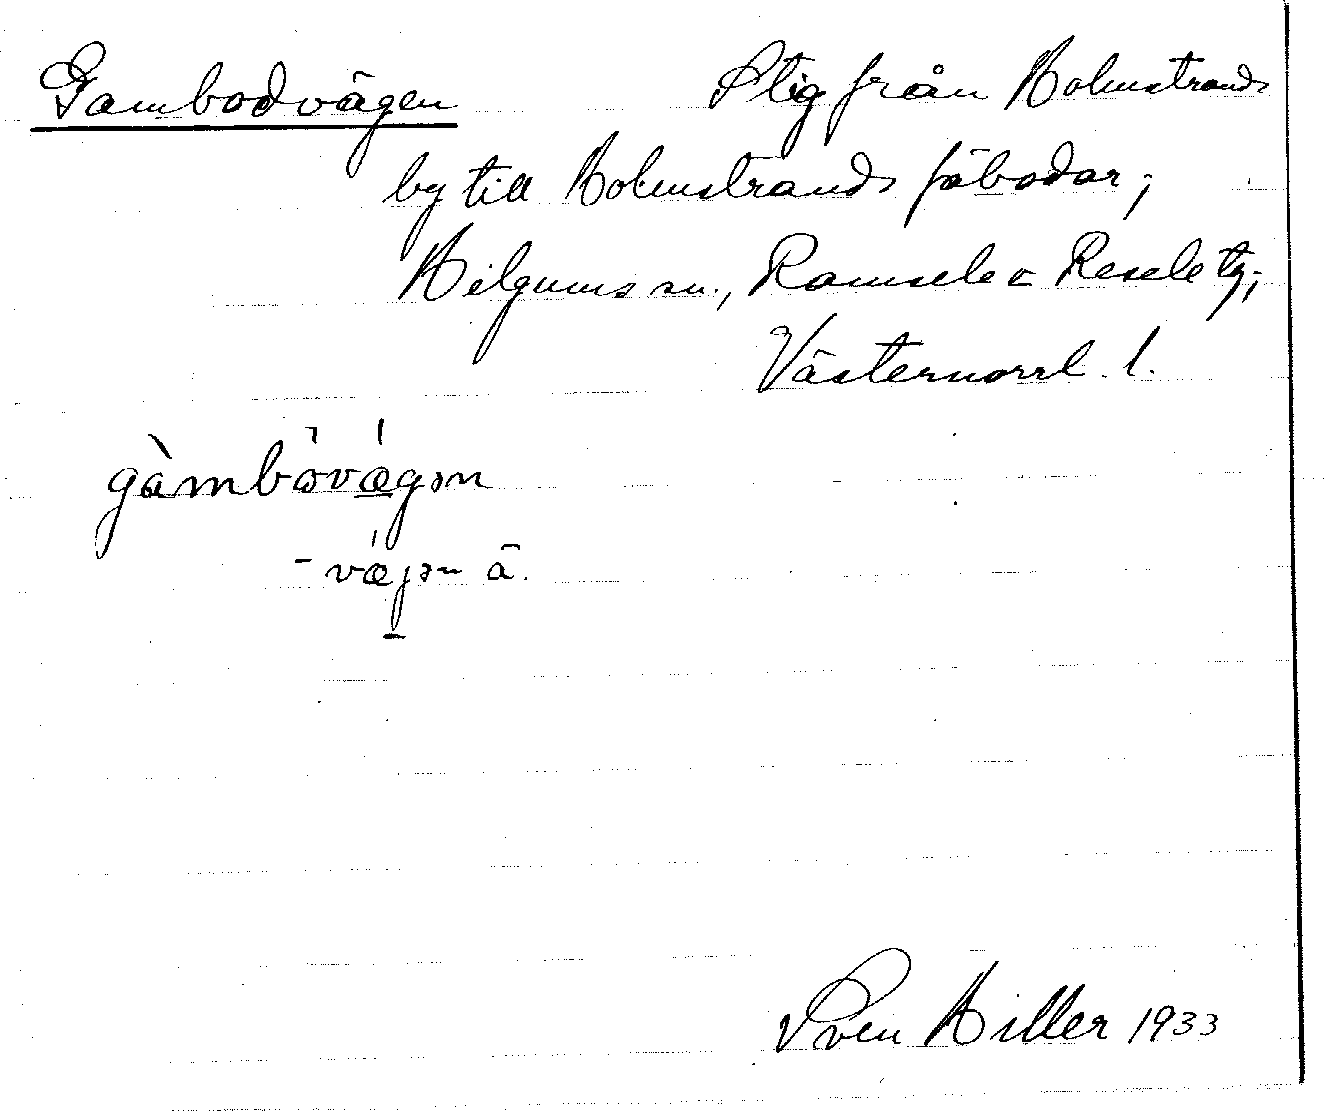 Gambodvägen Stig från Holmstrands
by till Holmstrands fäbodar;
Helgums sn., Ramsele o Resele tg;
Västernorrl. l.
gàmbòvæ̀gən
- væjən ä.
Sven Hiller 1933